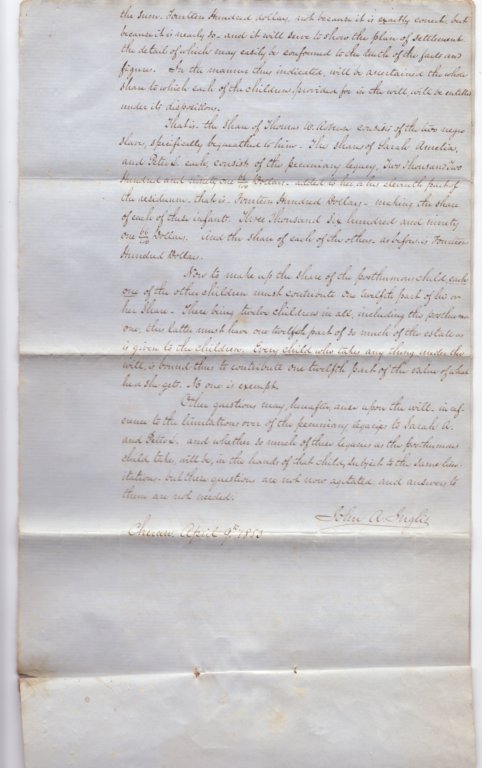 the sum. Fourteen Hundred dollars, not because it is exactly correct but
because it is nearly so. and it will serve to show the plan of settlement
the detail of which may easily be conformed to the truth of the facts and
figures. In the manner thus indicated, will be ascertained the whole
share to which each of the children, provided for in the will, will be entitled
under its dispositions.
That is. the share of Thomas W. consists of the two negro
slaves, specifically bequeathed to him. The shares of Sarah Amelia,
and Peter L. each, consist of the pecuniary legacy, Two Thousand Two
Hundred and ninety one Dollars. added to her or his eleventh part of
the residuum. that is. Fourteen Hundred Dollars. making the share
of each of these infants. Three Thousand Six hundred and ninety
one Dollars. And the share of each of the others. as before is Fourteen
Hundred Dollars.
Now to make up the share of the posthumous child, each
one of the other children must contribute one twelfth part of his or
her share. There being twelve children in all, including the posthumous
one, this latter must have one twelfth part of so much of the estate as
is given to the children. Every child who takes any thing under the
will, is bound thus to contribute one twelfth part of the value of what
he or she gets. No one is exempt.
Other questions may, hereafter, arise upon the will. in ref-
erence to the limitations over of the pecuniary legacies to Sarah A.
and Peter L. and whether so much of these legacies as the posthumous
child takes, will be, in the hands of that child, subject to the same limi-
tations. but these questions are not now agitated and answers to
them are not needed.
John A. Inglis
Cheraw, April 9th 1853